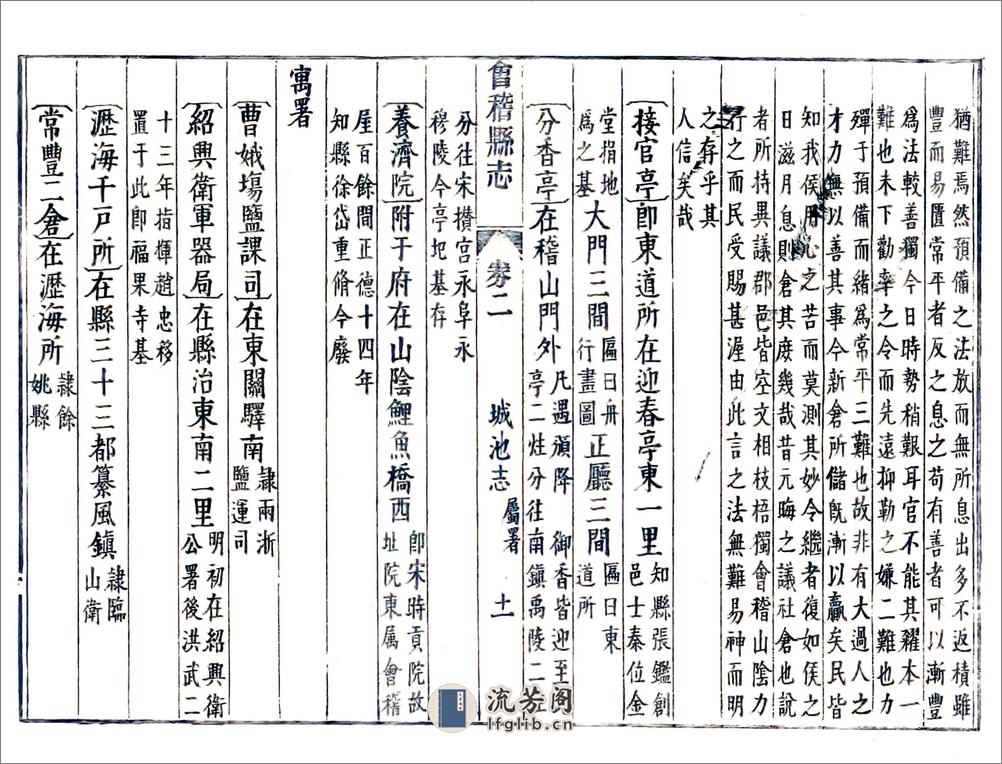 猶難焉然預備之法放而無所息出多不返積雖
豐而易匱常平者反之息之苟有善者可以漸豐
爲法較善獨今日時勢稍艱耳官不能其糴本一
難也未下勸率之令而先遠抑勒之嫌二難也力
殫于預備而緒爲常平三難也故非有大過人之
才力無以善其事今新倉所儲旣漸以贏矣民皆
知我侯用心之苦而莫測其妙令繼者復如侯之
日滋月息則倉其庋幾哉昔元晦之議社倉也說
者所持異議郡邑皆空文相枝梧獨會稽山陰力
行之而民受賜甚渥由此言之法無難易神而明
之存乎其
人信矣哉
接官亭卽東道所在迎春亭東一里知縣張鑑創邑士秦位金
堂捐地爲之基大門三間匾曰舟行畫圖正廳三間匾曰東道所
分香亭在稽山門外凡遇頒降御香皆迎至亭二炷分往南鎮禹陵二
分往宋攢宮永阜永
穆陵今亭圮基存
養濟院附于府在山陰鯉魚橋西卽宋時貢院故址院東屬會稽
屋百餘間正德十四年
知縣徐岱重脩今廢
寓署
曹娥場鹽課司在東關驛南隷兩浙鹽運司
紹興衛軍器局在縣治東南二里明初在紹興衛公署後洪武二
十三年指揮趙忠移
置于此卽福果寺基
瀝海千戶所在縣三十三都纂風鎮隷臨山衛
常豐二倉在瀝海所隷餘姚縣
會稽縣志
卷二
城池志
屬署
十一
流芳阁
lfglib.cn